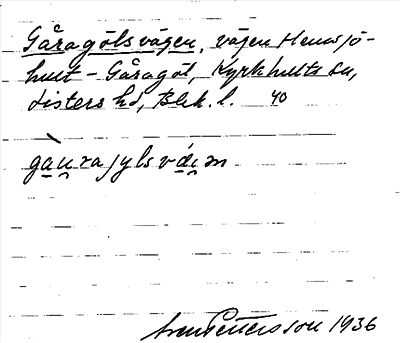 Gåragölsvägen, vägen Hemsjö-
hult - Gåragöl, Kyrkhults sn,
Listers hd, Blek. l. 40
gàu̯ragylsvɛ́i̯ən
Sven Pettersson 1936